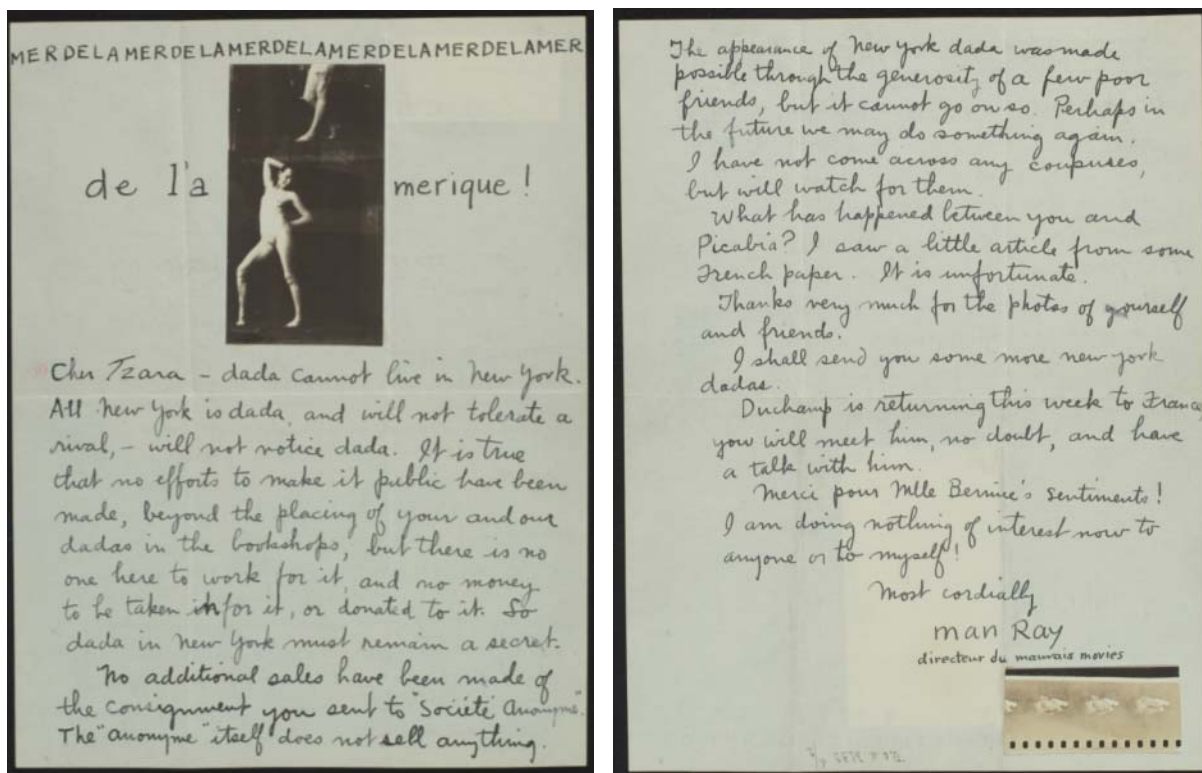 MERDELAMERDELAMERDELAMERDELAMERDELAMER
de l'a merique!
Cher Tzara – dada cannot live in New York.
All New York is dada, and will not tolerate a
rival, – will not notice dada. It is true
that no efforts to make it public have been
made, beyond the placing of your and our
dadas in the bookshops, but there is no
one here to work for it, and no money
to be taken in for it, or donated to it. So
dada in New York must remain a secret.
No additional sales have been made of
the consignment you sent to "Société Anonyme."
The "anonyme" itself does not sell anything.
The appearance of New York dada was made
possible through the generosity of a few poor
friends, but it cannot go on so. Perhaps in
the future we may do something again.
I have not come across any coupures,
but will watch for them.
What has happened between you and
Picabia? I saw a little article from some
French paper. It is unfortunate.
Thanks very much for the photos of yourself
and friends.
I shall send you some more new york
dadas.
Duchamp is returning this week to France,
you will meet him, no doubt, and have
a talk with him.
Merci pour Mlle Bernice's sentiments!
I am doing nothing of interest now to
anyone or to myself!
Most cordially
man Ray
directeur du mauvais movies